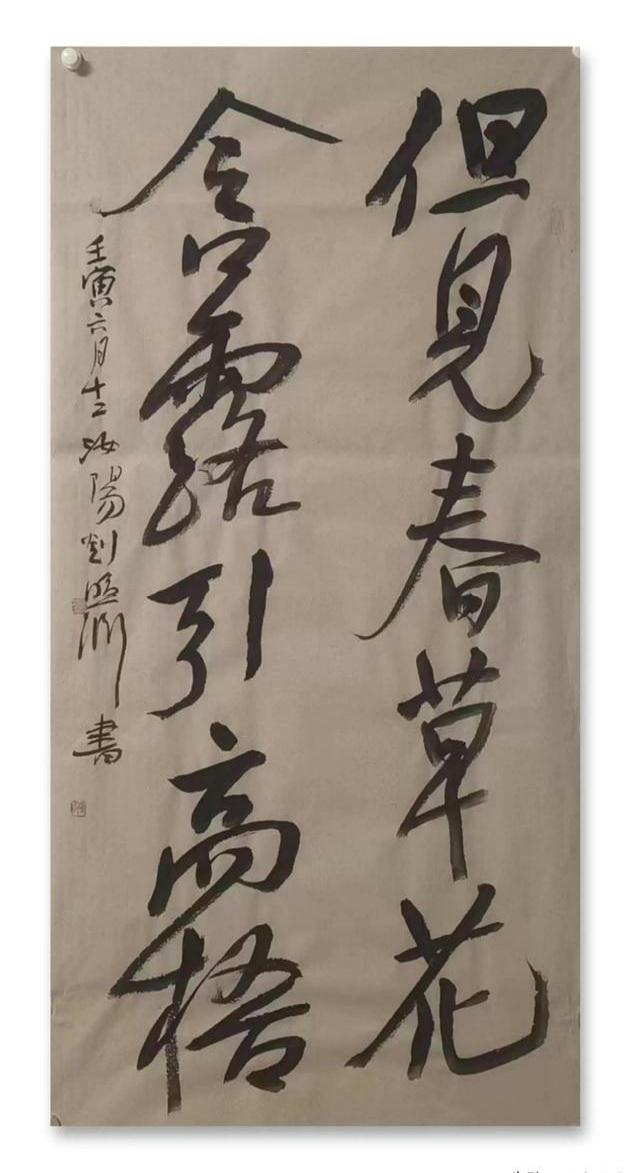 但見春草花
含露引高梧
壬寅六月十二汝陽劉照淵書